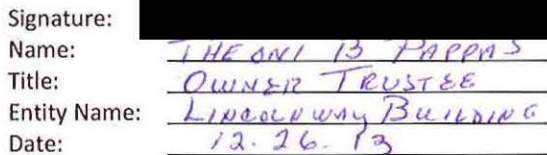 Signature:
Name: THEONI B PAPPAS
Title: OWNER TRUSTEE
Entity Name: LINCOLNWAY BUILDING
Date: 12.26.13